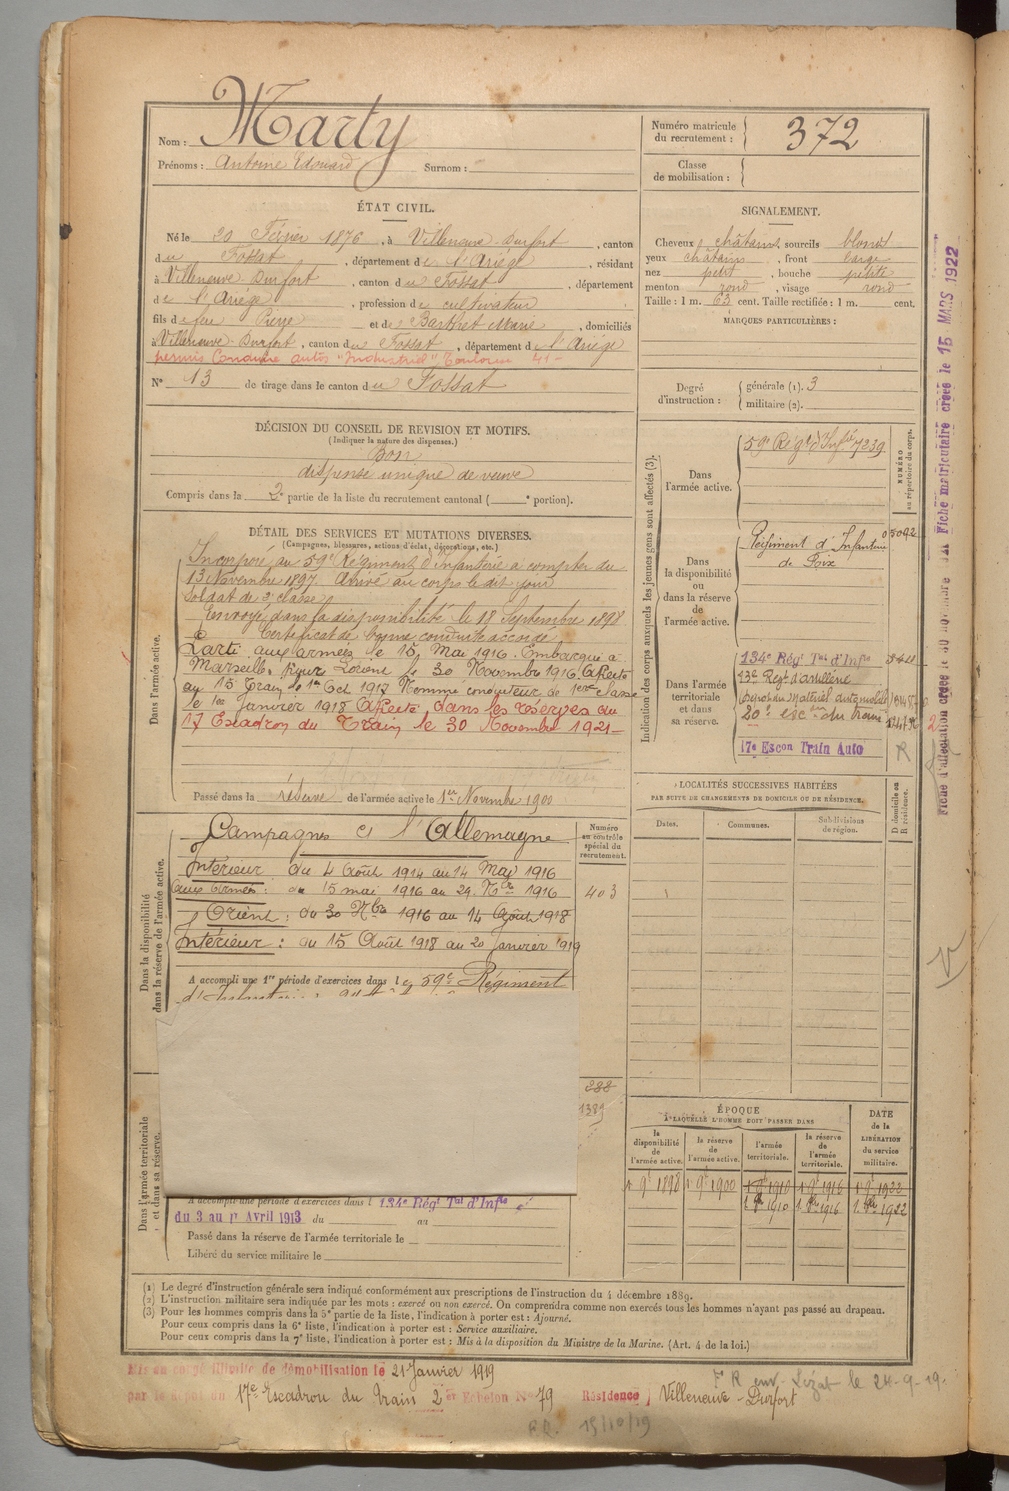 Nom : Marty
Prénoms : Antoine Edouard Surnom :
Numéro matricule du recrutement : 372
Classe de mobilisation :
ÉTAT CIVIL.
Né le 20 Février 1876, à Villeneuve-Durfort, canton
du Fossat, département de l'Ariège, résidant
à Villeneuve-Durfort, canton du Fossat, département
de l'Ariège, profession de cultivateur
fils de feu Pierre et de Barthet Marie, domiciliés
à Villeneuve-Durfort, canton du Fossat, département de l'Ariège
permis Conduire autos "Industriel" Toulouse 41-
N° 13 de tirage dans le canton du Fossat
SIGNALEMENT.
Cheveux châtains, sourcils blonds
yeux châtains, front large
nez petit, bouche petite
menton rond, visage rond
Taille : 1 m. 63 cent. Taille rectifiée : 1 m. cent.
MARQUES PARTICULIÈRES :
Degré d'instruction : générale (1). 3
militaire (2).
DÉCISION DU CONSEIL DE REVISION ET MOTIFS.
(Indiquer la nature des dispenses.)
Bon
dispense unique de veuve
Compris dans la 2e partie de la liste du recrutement cantonal ( e portion).
DÉTAIL DES SERVICES ET MUTATIONS DIVERSES.
(Campagnes, blessures, actions d'éclat, décorations, etc.)
Dans l'armée active.
Incorporé au 59e Régiment d'Infanterie à compter du
13 Novembre 1897. Arrivé au corps le dit jour
Soldat de 2e classe
Envoyé dans la disponibilité le 18 Septembre 1898
Certificat de bonne conduite accordé
Parti aux armées le 15 Mai 1916. Embarqué à
Marseille pour l'Orient le 30 Novembre 1916. Affecté
au 15 Train le 1er Oct 1917 Nommé conducteur de 1ere Classe
le 1er Janvier 1918 Affecté dans les réserves du
17 Escadron du Train le 30 Novembre 1921-
Passé dans la réserve de l'armée active le 1er Novembre 1900
Indication des corps auxquels les jeunes gens sont affectés (3).
NUMÉRO au répertoire du corps.
Dans l'armée active.
59e Régt d'Infie 7239
Dans la disponibilité ou dans la réserve de l'armée active.
Régiment d'Infanterie 05092
de Foix
Dans l'armée territoriale et dans sa réserve.
134e Régt Tal d'Infie
13e Régt d'artillerie
20e escon du train
17e Escon Train Auto R
Dans la disponibilité
dans la réserve de l'armée active.
Campagnes ct l'Allemagne
Intérieur du 4 Août 1914 au 14 May 1916
aux Armées : du 15 mai 1916 au 29 Nbre 1916
Orient : du 30 Nbre 1916 au 14 Août 1918
Intérieur : au 15 Août 1918 au 20 Janvier 1919
Numéro au contrôle spécial du recrutement.
403
A accompli une 1re période d'exercices dans le 59e Régiment
LOCALITÉS SUCCESSIVES HABITÉES
PAR SUITE DE CHANGEMENTS DE DOMICILE OU DE RÉSIDENCE.
Dates. Communes. Subdivisions de région.
D domicile ou R résidence.
388
1389
Dans l'armée territoriale
et dans sa réserve.
A accompli une période d'exercices dans l 134e Régt Tal d'Infie
du 3 au 11 Avril 1913 du au
Passé dans la réserve de l'armée territoriale le
Libéré du service militaire le
ÉPOQUE
A LAQUELLE L'HOMME DOIT PASSER DANS
la disponibilité de l'armée active.
la réserve de l'armée active.
l'armée territoriale.
la réserve de l'armée territoriale.
DATE de la LIBÉRATION du service militaire.
1 9e 1898 1 9e 1900 1 9e 1910 1 9e 1916 1 9e 1922
1910 1916 1922
(1) Le degré d'instruction générale sera indiqué conformément aux prescriptions de l'instruction du 4 décembre 1889.
(2) L'instruction militaire sera indiquée par les mots : exercé ou non exercé. On comprendra comme non exercés tous les hommes n'ayant pas passé au drapeau.
(3) Pour les hommes compris dans la 5e partie de la liste, l'indication à porter est : Ajourné.
Pour ceux compris dans la 6e liste, l'indication à porter est : Service auxiliaire.
Pour ceux compris dans la 7e liste, l'indication à porter est : Mis à la disposition du Ministre de la Marine. (Art. 4 de la loi.)
Mis en congé illimité de démobilisation le 21 Janvier 1919
par le dépôt du 17e Escadron du Train 2er Echelon N° 79 Résidence Villeneuve-Durfort
le 24-9-19.
15/10/19
Fiche matriculaire créée le 15 MARS 1922